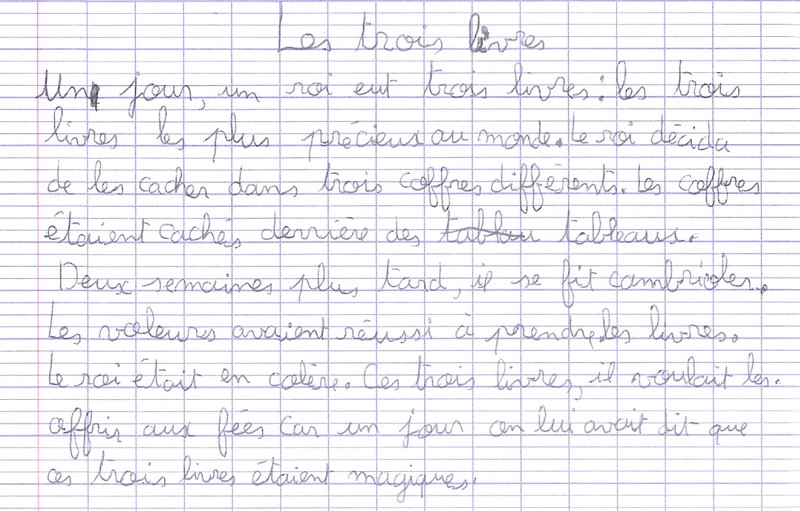 Les trois livres
Un jour, un roi eut trois livres : les trois
livres les plus précieux au monde. Le roi décida
de les cacher dans trois coffres différents. Les coffres
étaient cachés derrière des tableau tableaux.
Deux semaines plus tard, il se fit cambrioler.
Les voleurs avaient réussi à prendre les livres.
Le roi était en colère. Ces trois livres, il voulait les
offrir aux fées car un jour on lui avait dit que
ces trois livres étaient magiques.